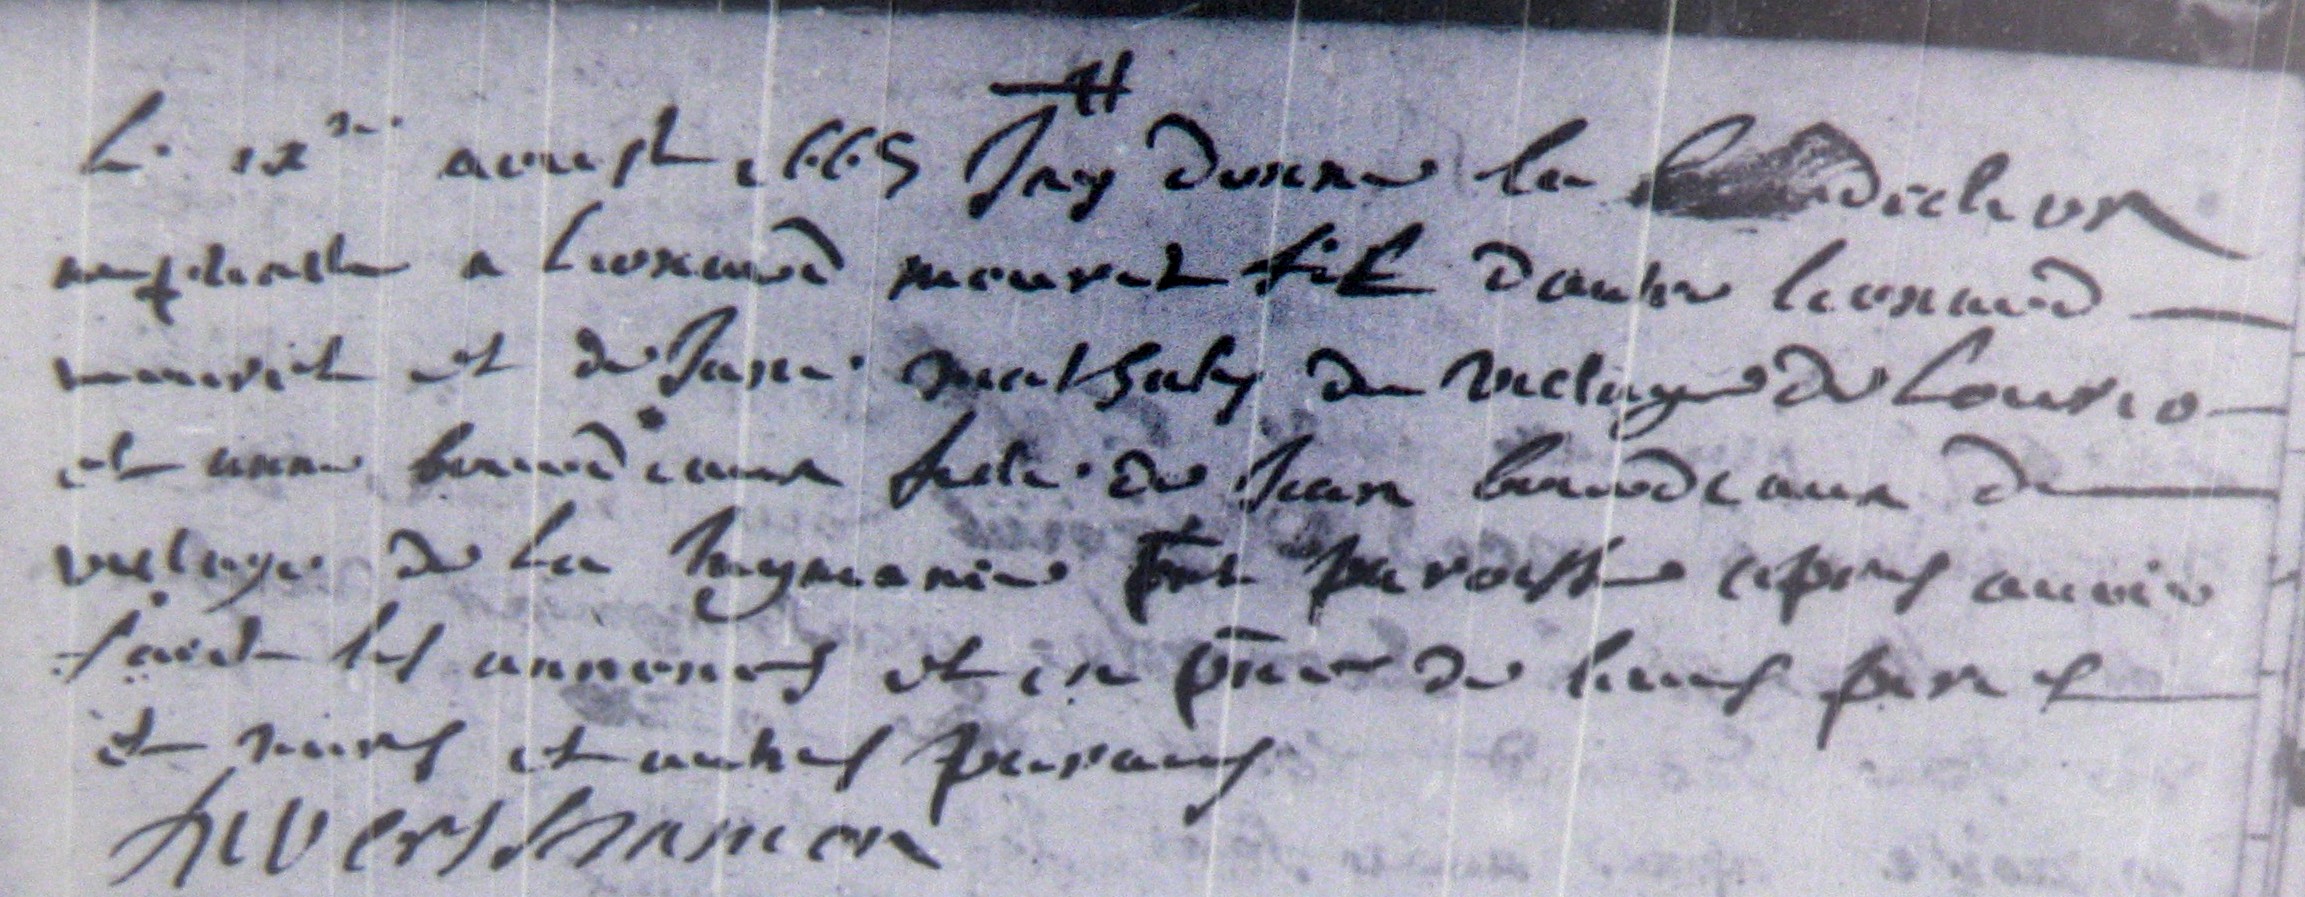 Le ix me aoust 1665 Jay donne la benediction
nuptialle a leonard mouret fils dautre leonard
mouret et de Jane mathaly du vilage de
et anne bourdeaux fille de Jean bourdeaux du
vilage de la pnte paroisse apres avoir
faict les annonces et en pnce de leurs peres
et meres et autres parans